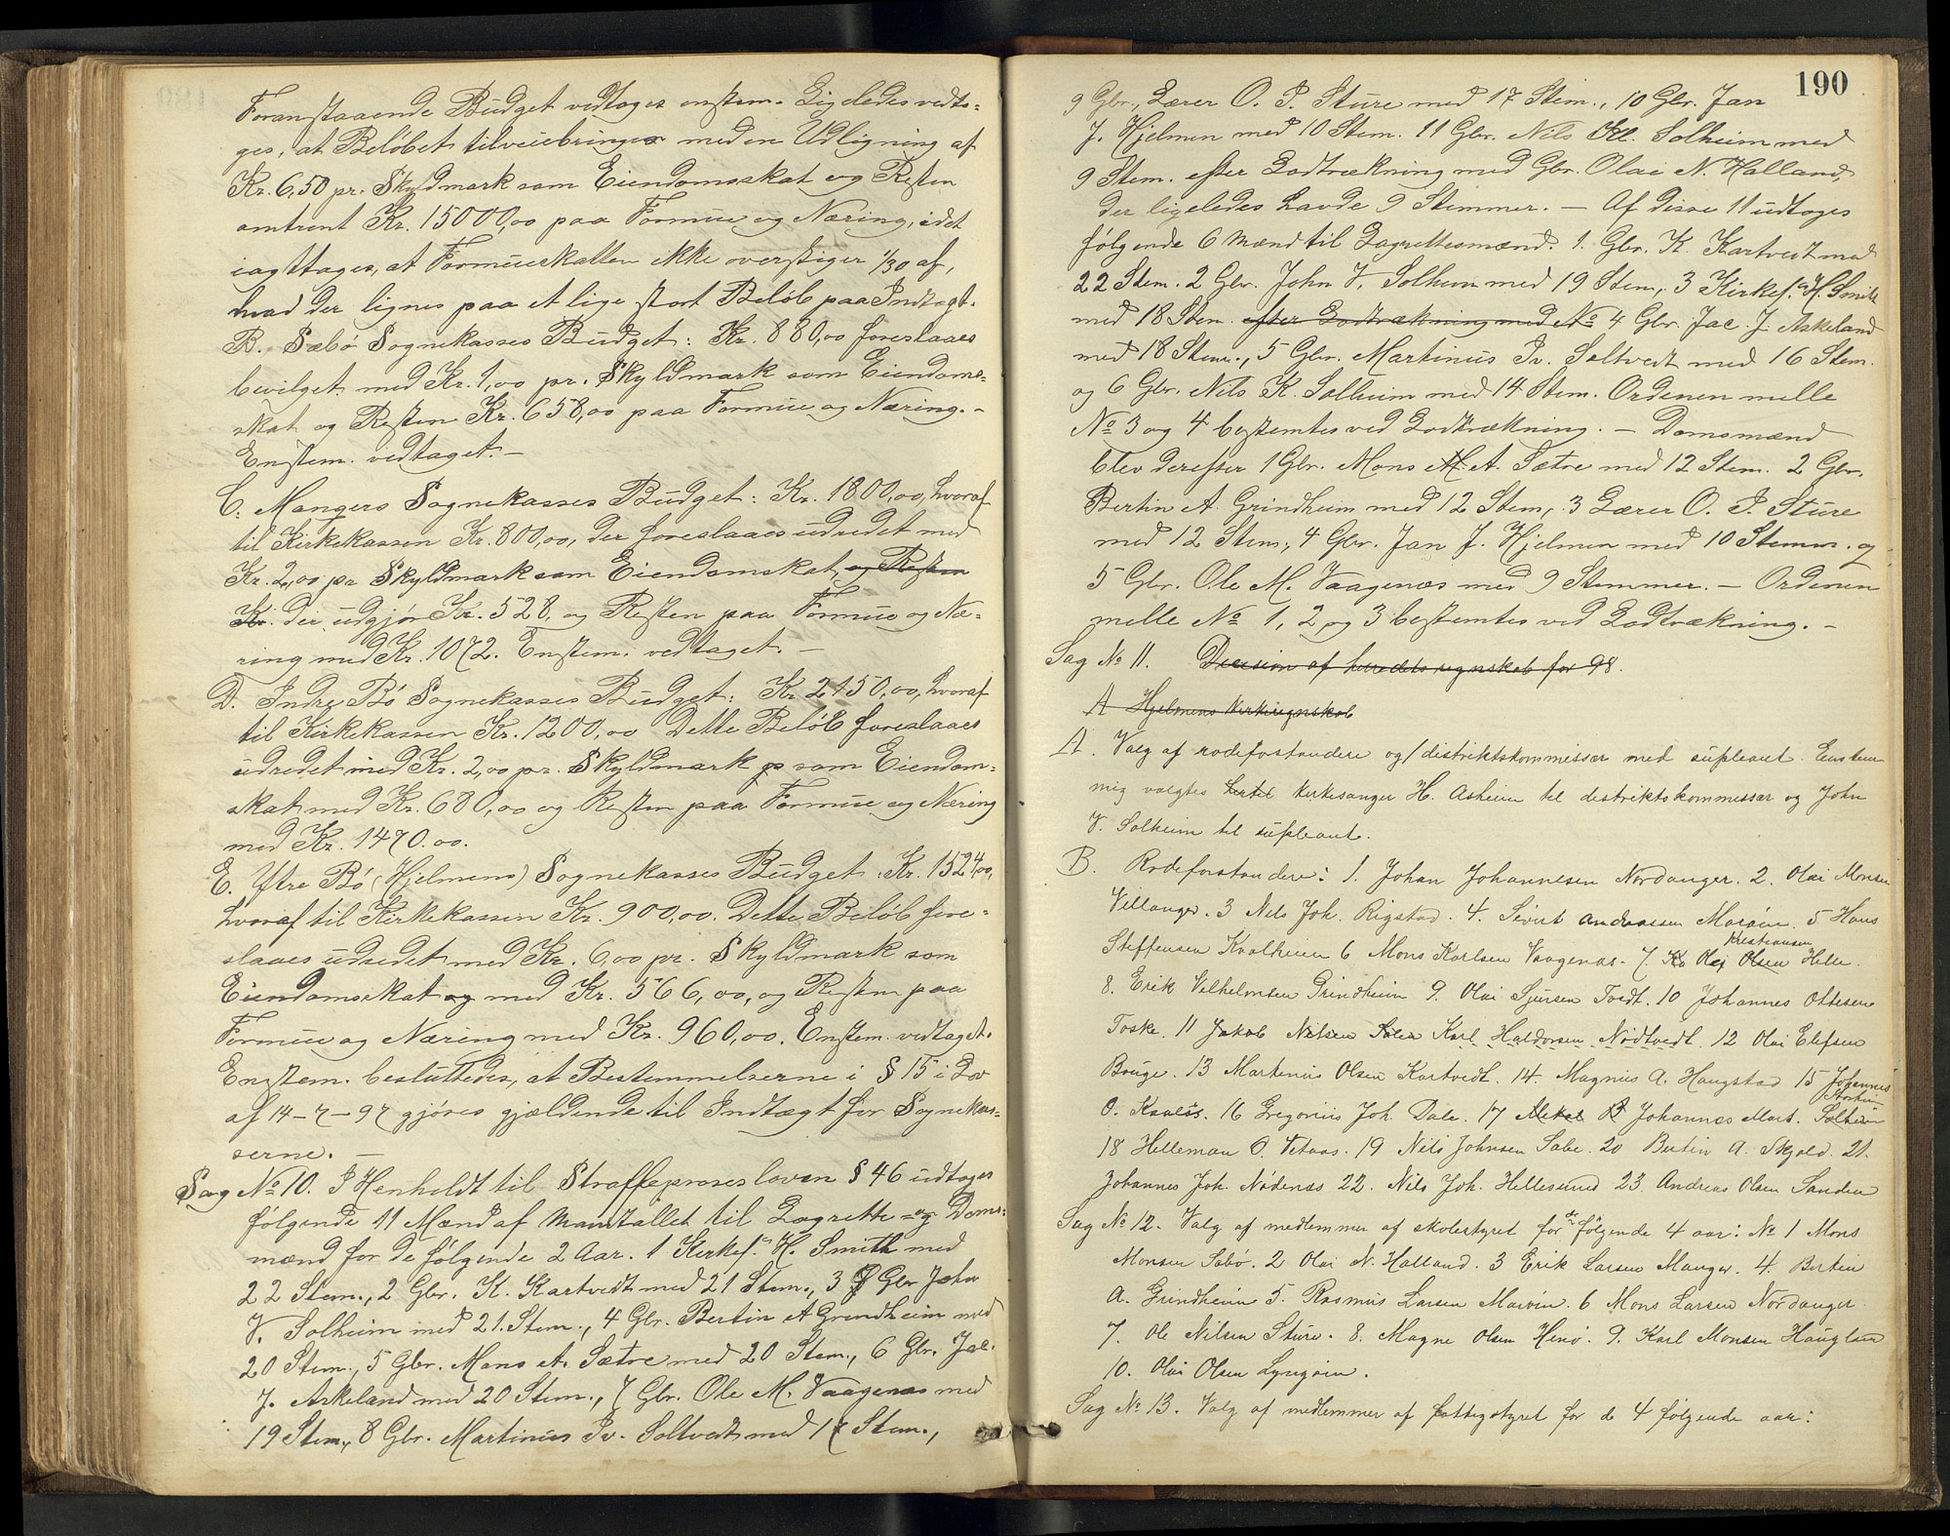 Foranstaaende Budget vedtoges enstem. Ligeledes vedto-
ges, at Beløbet tilveiebringes med en Udligning af
Kr. 6,50 pr. Skyldmark som Eiendomsskat og Resten
omtrent Kr. 15000,00 paa Formue og Næring, idet
iagttages, at Formueskatten ikke overstiger 1/30 af,
hvad der lignes paa et lige stort Beløb paa Indtægt.
B. Sæbø Sognekasses Budget: Kr. 880,00 foreslaaes
bevilget med Kr. 1,00 pr. Skyldmark som Eiendoms-
skat og Resten Kr. 658,00 paa Formue og Næring. -
Enstem. vedtaget. -
C. Mangers Sognekasses Budget: Kr. 1800,00, hvoraf
til Kirkekassen Kr. 800,00, der foreslaaes udredet med
Kr. 2,00 pr Skyldmark som Eiendomskat og Resten
Kr. der udgjør Kr. 528, og Resten paa Formue og Næ-
ring med Kr. 1072. Enstem. vedtaget. -
D. Indre Bø Sognekasses Budget: Kr 2150,00, hvoraf
til Kirkekassen Kr. 1200,00 Dette Beløb foreslaaes
udredet med Kr. 2,00 pr. Skyldmark som Eiendom-
skat med Kr. 680,00 og Resten paa Formue og Næring
med Kr. 1470.00.
E. Ytre Bø (Hjelmens) Sognekasses Budget. Kr. 1524,00,
hvoraf til Kirkekassen Kr. 900,00. Dette Beløb fore-
slaaes udredet med Kr. 6,00 pr. Skyldmark som
Eiendomsskat og med Kr. 566,00, og Resten paa
Formue og Næring med Kr. 960,00. Enstem. vedtaget.
Enstem. besluttedes, at Bestemmelserne i § 15 i Lov
af 14-7-97 gjøres gjældende til Indtægt for Sognekas-
serne. -
Sag No 10. I Henholdt til Straffeproseslovens § 46 udtoges
følgende 11 Mænd af Mantallet til Lagrette- og Doms-
mænd for de følgende 2 Aar. 1 Kirkes. H. Smith med
22 Stem., 2 Gbr. K. Kartvedt med 21 Stem., 3 Gbr John
V. Solheim med 21. Stem., 4 Gbr. Bertin A Grindheim med
20 Stem., 5 Gbr. Mons A. Sætre med 20 Stem., 6 Gbr. Jac.
J. Askeland med 20 Stem., 7 Gbr. Ole M. Vaagenæs med
19 Stem., 8 Gbr. Martinus Iv. Soltvedt med 17 Stem.,
190
9 Gbr., Lærer O. P. Sture med 17 Stem., 10 Gbr. Jan
J. Hjelmen med 10 Stem. 11 Gbr. Nils Solheim med
9 Stem. efter Lodtrækning med Gbr. Olai N. Halland,
der ligeledes havde 9 Stemmer. - Af disse 11 udtoges
følgende 6 Mænd til Lagrettesmænd. 1. Gbr. K. Kartvedt med
22 Stem. 2 Gbr. John V. Solheim med 19 Stem., 3 Kirkes. H. Smith
med 18 Stem. efter Lodtrækning med No 4 Gbr. Jac. J. Askeland
med 18 Stem., 5 Gbr. Martinus Iv. Soltvedt med 16 Stem.
og 6 Gbr. Nils K. Solheim med 14 Stem. Ordenen melle
No 3 og 4 bestemtes ved Lodtrækning. - Domsmænd
blev derefter 1 Gbr. Mons A. Sætre med 12 Stem. 2 Gbr.
Bertin A Grindheim med 12 Stem., 3 Lærer O. P. Sture
med 12 Stem., 4 Gbr. Jan J. Hjelmen med 10 Stemm. og
5 Gbr. Ole M. Vaagenæs med 9 Stemmer. - Ordenen
melle No 1, 2 og 3 bestemtes ved Lodtrækning. -
Sag No 11. Decision af herredsregnskab for 98.
A Hjelmens Kirkeregnskab
A. Valg af rodeforstandere og distriktskommissær med supleant. Enstem-
mig valgtes kirkesanger H. Asheim til distriktskommissær og John
V. Solheim til supleant.
B. Rodeforstandere: 1. Johan Johannesen Nordanger. 2. Olai Monsen
Villanger. 3 Nils Joh. Rigstad. 4. Sivert Andersen Marøen. 5 Hans
Steffensen Kvalheim 6 Mons Karlsen Vaagenæs. 7. Olai Olsen Kristiansen Helle.
8. Erik Vilhelmsen Grindheim 9. Olai Sjursen Tvedt. 10 Johannes Ottesen
Toska. 11 Jakob Nilsen Karl Haldorsen Nødtvedt. 12 Olai Elefsen
Bauge. 13 Martinus Olsen Kartvedt. 14. Magnus A. Haugstad 15 Johannes
O. Kvales. 16 Gregorius Joh. Dale. 17 Mikal Johannes Mart. Solheim
18 Helleman O. Vetaas. 19 Nils Johnsen Sæbø. 20 Bertin A. Skjold. 21.
Johannes Joh. Nødenæs 22. Nils Joh. Hellesund 23. Andreas Olsen Sanden
Sag No 12. Valg af medlemmer af skolestyret for de følgende 4 aar: No 1 Mons
Monsen Sæbø. 2 Olai N. Halland. 3 Erik Larsen Manger. 4. Bertin
A. Grindheim 5. Rasmus Larsen Marøen. 6 Mons Larsen Nordanger.
7. Ole Nilsen Sture. 8. Magne Olsen Henø. 9. Karl Monsen Hauglan
10. Olai Olsen Lyngøen.
Sag No 13. Valg af medlemmer af fattigstyret for de 4 følgende aar: